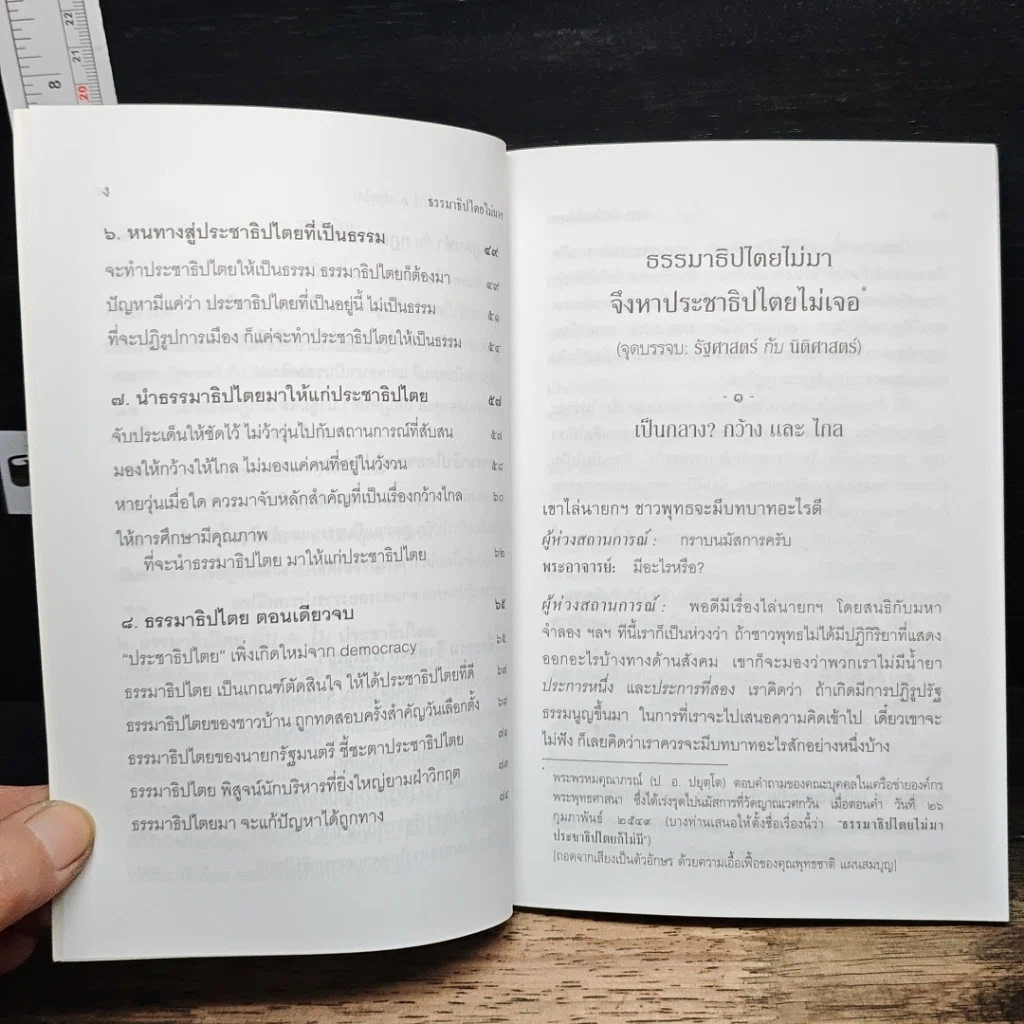 22
21
20
8
ง
ธรรมาธิปไตยไม่มา
๖. หนทางสู่ประชาธิปไตยที่เป็นธรรม ๔๙
จะทำประชาธิปไตยให้เป็นธรรม ธรรมาธิปไตยก็ต้องมา ๔๙
ปัญหามีแค่ว่า ประชาธิปไตยที่เป็นอยู่นี้ ไม่เป็นธรรม ๕๑
ที่จะปฏิรูปการเมือง ก็แค่จะทำประชาธิปไตยให้เป็นธรรม ๕๔
๗. นำธรรมาธิปไตยมาให้แก่ประชาธิปไตย ๕๗
จับประเด็นให้ชัดไว้ ไม่ว้าวุ่นไปกับสถานการณ์ที่สับสน ๕๗
มองให้กว้างให้ไกล ไม่มองแค่คนที่อยู่ในวังวน ๕๘
หายวุ่นเมื่อใด ควรมาจับหลักสำคัญที่เป็นเรื่องกว้างไกล ๖๐
ให้การศึกษามีคุณภาพ
ที่จะนำธรรมาธิปไตย มาให้แก่ประชาธิปไตย ๖๒
๘. ธรรมาธิปไตย ตอนเดียวจบ ๖๕
"ประชาธิปไตย" เพิ่งเกิดใหม่จาก democracy ๖๕
ธรรมาธิปไตย เป็นเกณฑ์ตัดสินใจ ให้ได้ประชาธิปไตยที่ดี
ธรรมาธิปไตยของชาวบ้าน ถูกทดสอบครั้งสำคัญวันเลือกตั้ง
ธรรมาธิปไตยของนายกรัฐมนตรี ชี้ชะตาประชาธิปไตย
ธรรมาธิปไตย พิสูจน์นักบริหารที่ยิ่งใหญ่ยามฝ่าวิกฤต
ธรรมาธิปไตยมา จะแก้ปัญหาได้ถูกทาง
ธรรมาธิปไตยไม่มา
จึงหาประชาธิปไตยไม่เจอ*
(จุดบรรจบ: รัฐศาสตร์ กับ นิติศาสตร์)
- ๑ -
เป็นกลาง? กว้าง และ ไกล
เขาไล่นายกฯ ชาวพุทธจะมีบทบาทอะไรดี
ผู้ห่วงสถานการณ์ : กราบนมัสการครับ
พระอาจารย์: มีอะไรหรือ?
ผู้ห่วงสถานการณ์ : พอดีมีเรื่องไล่นายกฯ โดยสนธิกับมหา
จำลอง ฯลฯ ทีนี้เราก็เป็นห่วงว่า ถ้าชาวพุทธไม่ได้มีปฏิกิริยาที่แสดง
ออกอะไรบ้างทางด้านสังคม เขาก็จะมองว่าพวกเราไม่มีน้ำยา
ประการหนึ่ง และประการที่สอง เราคิดว่า ถ้าเกิดมีการปฏิรูปรัฐ
ธรรมนูญขึ้นมา ในการที่เราจะไปเสนอความคิดเข้าไป เดี๋ยวเขาจะ
ไม่ฟัง ก็เลยคิดว่าเราควรจะมีบทบาทอะไรสักอย่างหนึ่งบ้าง
* พระพรหมคุณาภรณ์ (ป. อ. ปยุตฺโต) ตอบคำถามของคณะบุคคลในเครือข่ายองค์กร
พระพุทธศาสนา ซึ่งได้เร่งรุดไปนมัสการที่วัดญาณเวศกวัน เมื่อตอนค่ำ วันที่ ๒๖
กุมภาพันธ์ ๒๕๔๙ (บางท่านเสนอให้ตั้งชื่อเรื่องนี้ว่า "ธรรมาธิปไตยไม่มา
ประชาธิปไตยก็ไม่มี")
[ถอดจากเสียงเป็นตัวอักษร ด้วยความเอื้อเฟื้อของคุณพุทธชาติ แผนสมบุญ]